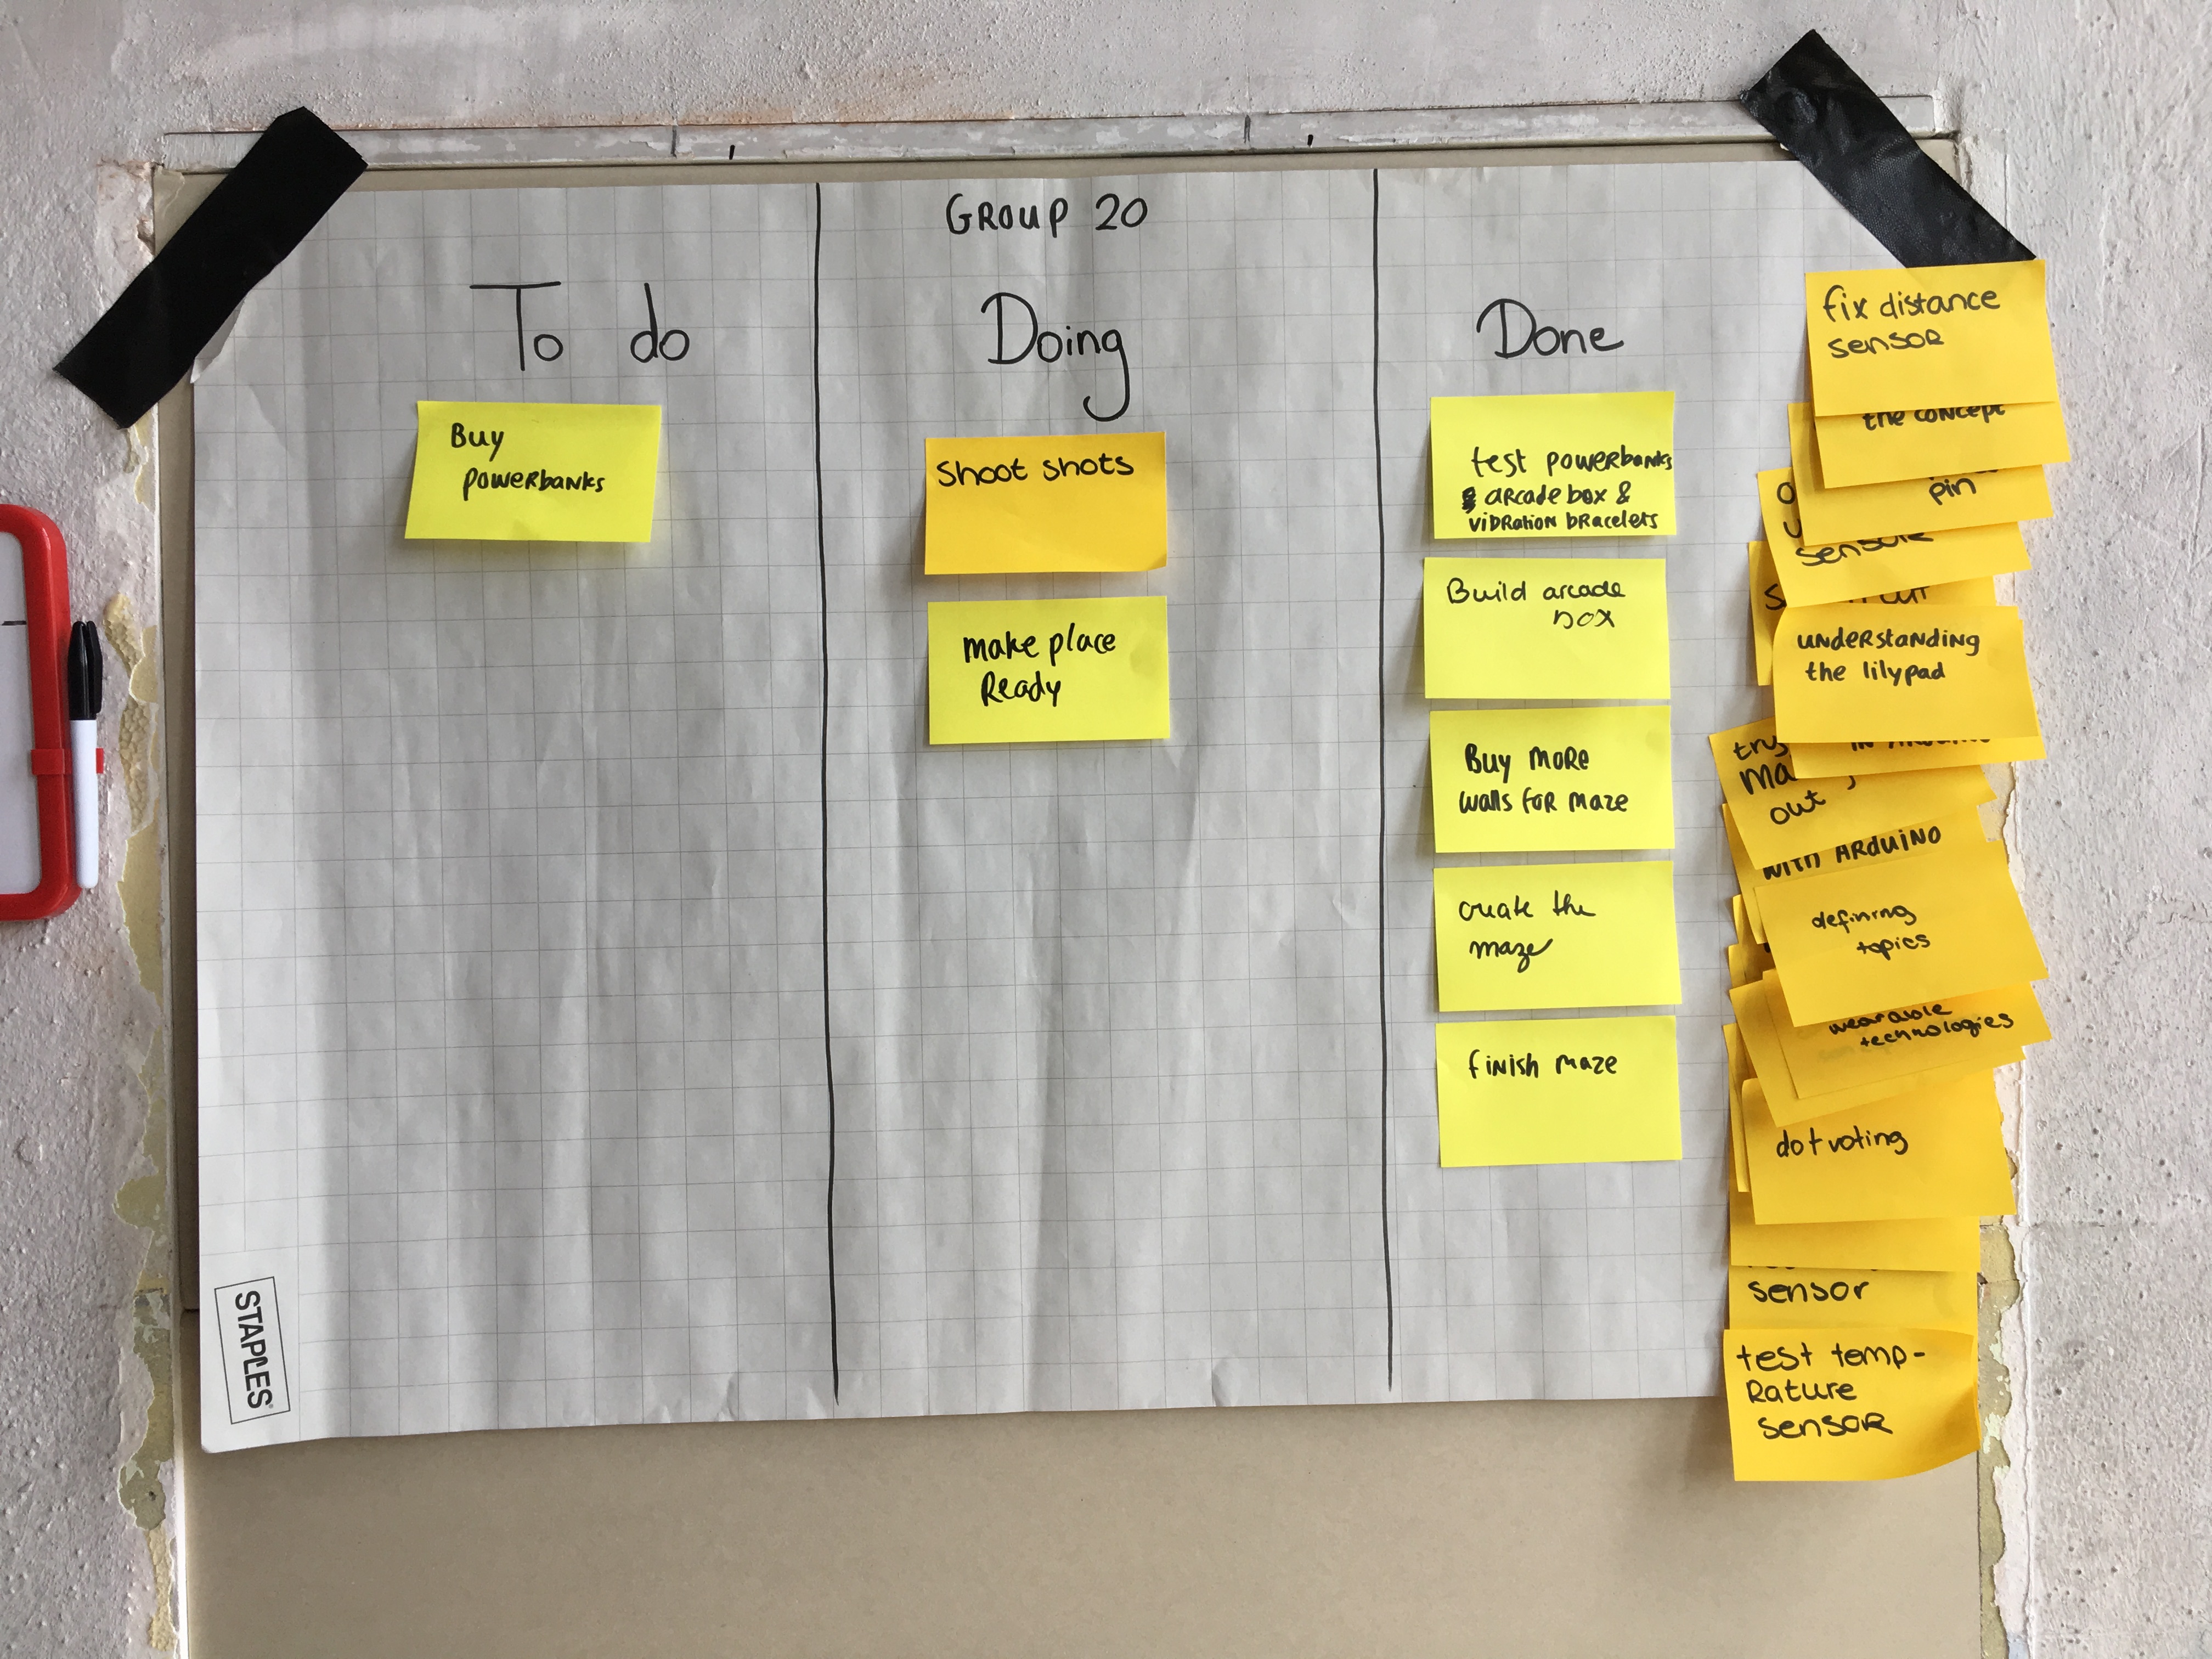 GROUP 20
To do
Buy
powerbanks
Doing
Shoot shots
make place
Ready
Done
test powerbanks
arcade box &
vibration bracelets
Build arcade
box
Buy more
walls for maze
create the
maze
finish maze
fix distance
sensor
the concept
pin
sensor
understanding
the lilypad
out
with Arduino
defining
topics
wearable
technologies
dot voting
sensor
test temp-
rature
sensor
STAPLES